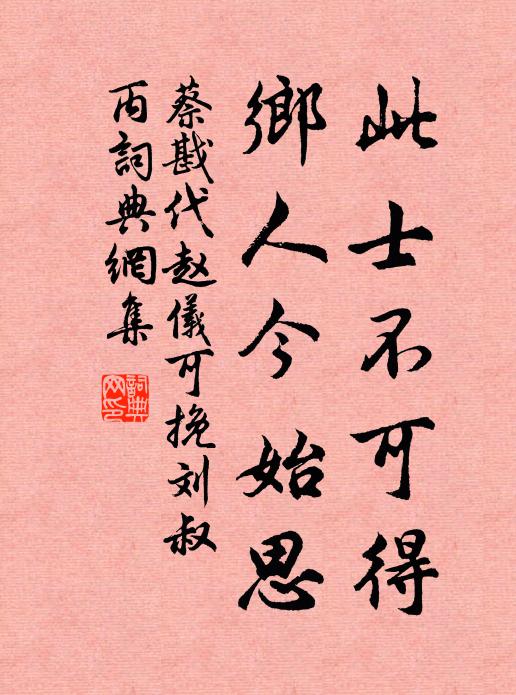 此士不可得
鄉人今始思
蔡戡代赵儀可挽刘叔
丙詞典網集
詞典網印